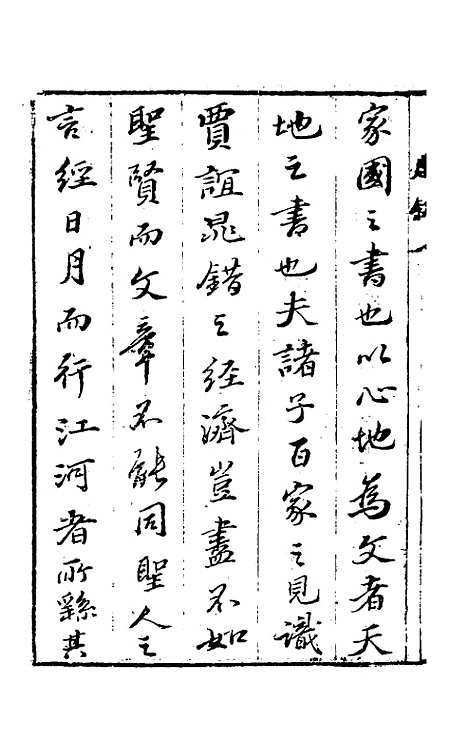 家國之書也以心地為文者天
地之書也夫諸子百家之見識
賈誼晁錯之經濟豈盡不如
聖賢而文章不能同聖人之
言經日月而行江河者所繇其